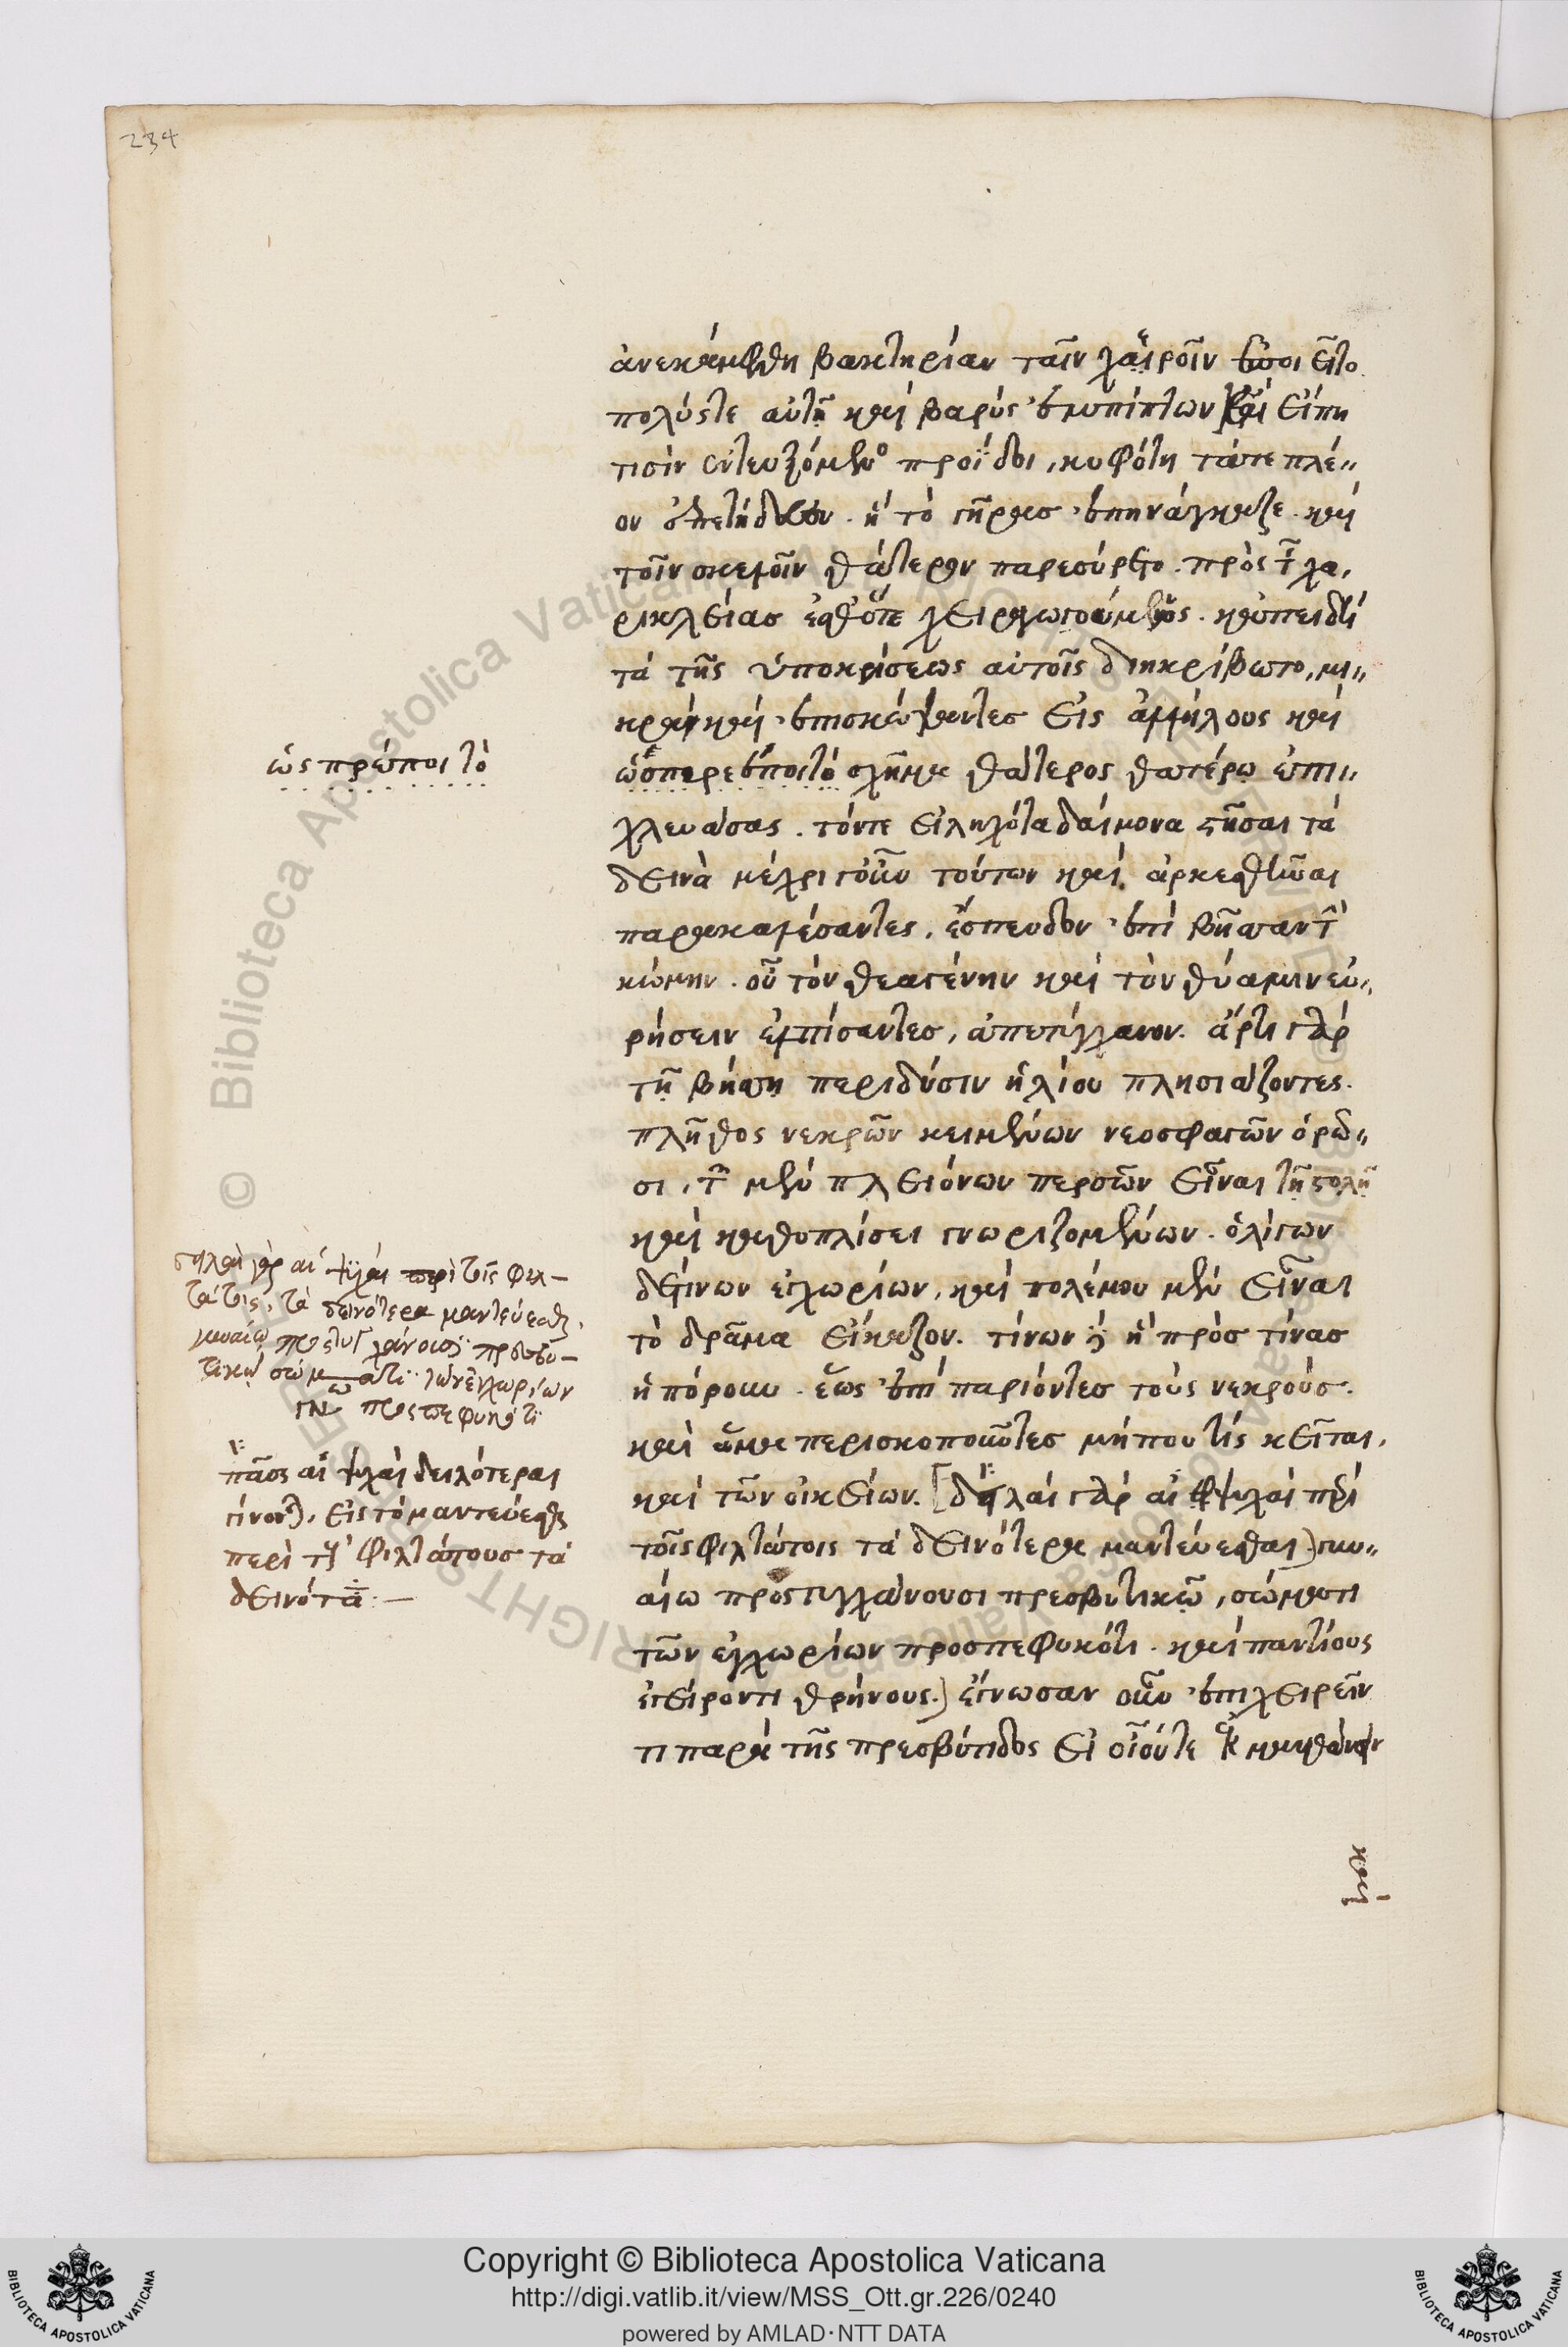 234
ἀνεκάμφθη βακτηρίαν ταῖν χεροῖν
πολύς τε αὐτῆ καὶ βαρὺς ἐμπίπτων καὶ εἴ πη
τισὶν ἐντευξόμενος προΐδοι, κυφότη τά τε πλέ〃
ον ἐπετήδευεν. ἢ τὸ γῆρας ἐπηνάγκαζε. καὶ
τοῖν σκελοῖν θάτερον παρεσύρετο. πρὸς τῆς χα,
ρικλείας ἔσθ' ὅτε χειραγωγούμενος. κἀπειδὴ
τὰ τῆς ὑποκρίσεως αὐτοῖς διηκρίβωτο, μι〃
κρὰ καὶ ἐπισκώψαντες εἰς ἀλλήλους καὶ
ὥσπερ ἔποι τὸ σχῆμα θάτερος θατέρω ἐπι〃
χλευάσας. τόν τε εἰληχότα δαίμονα στῆσαι τὰ
δεινὰ μέχρι γοῦν τούτων καὶ ἀρκεσθῆναι
παρακαλέσαντες, ἔσπευδον ἐπὶ βῆσσαν τὴν
κώμην. οὗ τὸν θεαγένην καὶ τὸν θύαμιν εὑ〃
ρήσειν ἐλπίσαντες, ἀπετύγχανον. ἄρτι γὰρ
τῆ βήσση περὶ δύσιν ἡλίου πλησιάζοντες.
πλῆθος νεκρῶν κειμένων νεοσφαγῶν ὁρῶ〃
σι, τῶν μὲν πλειόνων περσῶν εἶναι τῆ στολῆ
καὶ καθοπλίσει γνωριζομένων. ὀλίγων
δέ τινων ἐγχωρίων, καὶ πολέμου μὲν εἶναι
τὸ δρᾶμα εἴκαζον. τίνων δὲ ἢ πρὸς τίνας
ἠπόρουν. ἕως ἐπιπαριόντες τοὺς νεκρούς.
καὶ ἅμα περισκοποῦντες μή πού τις κεῖται,
καὶ τῶν οἰκείων. [δειλαὶ γὰρ αἱ ψυχαὶ περὶ
τοῖς φιλτάτοις τὰ δεινότερα μαντεύεσθαι.) γυν〃
αίω προστυγχάνουσι πρεσβυτικῶ, σώματι
τῶν ἐγχωρίων προσπεφυκότι. καὶ παντίους
ἐγείροντι θρήνους.) ἔγνωσαν οὖν ἐπιχειρεῖν
τι παρὰ τῆς πρεσβύτιδος εἰ οἷόν τε ἐκμανθάνειν
καὶ
ὡς πρέποι τὸ
δειλαὶ γὰρ αἱ ψυχαὶ περὶ τοῖς φιλ–
τάτοις, τὰ δεινότερα μαντεύεσθαι,
γυναίω προστυγχάνουσι πρεσβυ–
τικῶ σώματι τῶν ἐγχωρίων
προσπεφυκότι
πᾶσ αἱ ψυχαὶ δειλότεραι
γίνονται, εἰς τὸ μαντεύεσθαι
περὶ τοὺς φιλτάτους τὰ
δεινότατα:—
© Biblioteca Apostolica Vaticana
Copyright © Biblioteca Apostolica Vaticana
http://digi.vatlib.it/view/MSS_Ott.gr.226/0240
powered by AMLAD·NTT DATA
BIBLIOTECA APOSTOLICA VATICANA
BIBLIOTECA APOSTOLICA VATICANA